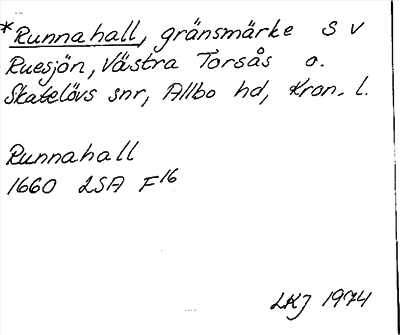 *Runnahall, gränsmärke S V
Ruesjön, Västra Torsås o.
Skatelövs snr, Allbo hd, Kron. l.
Runnahall
1660 LSA F16
LKJ 1974